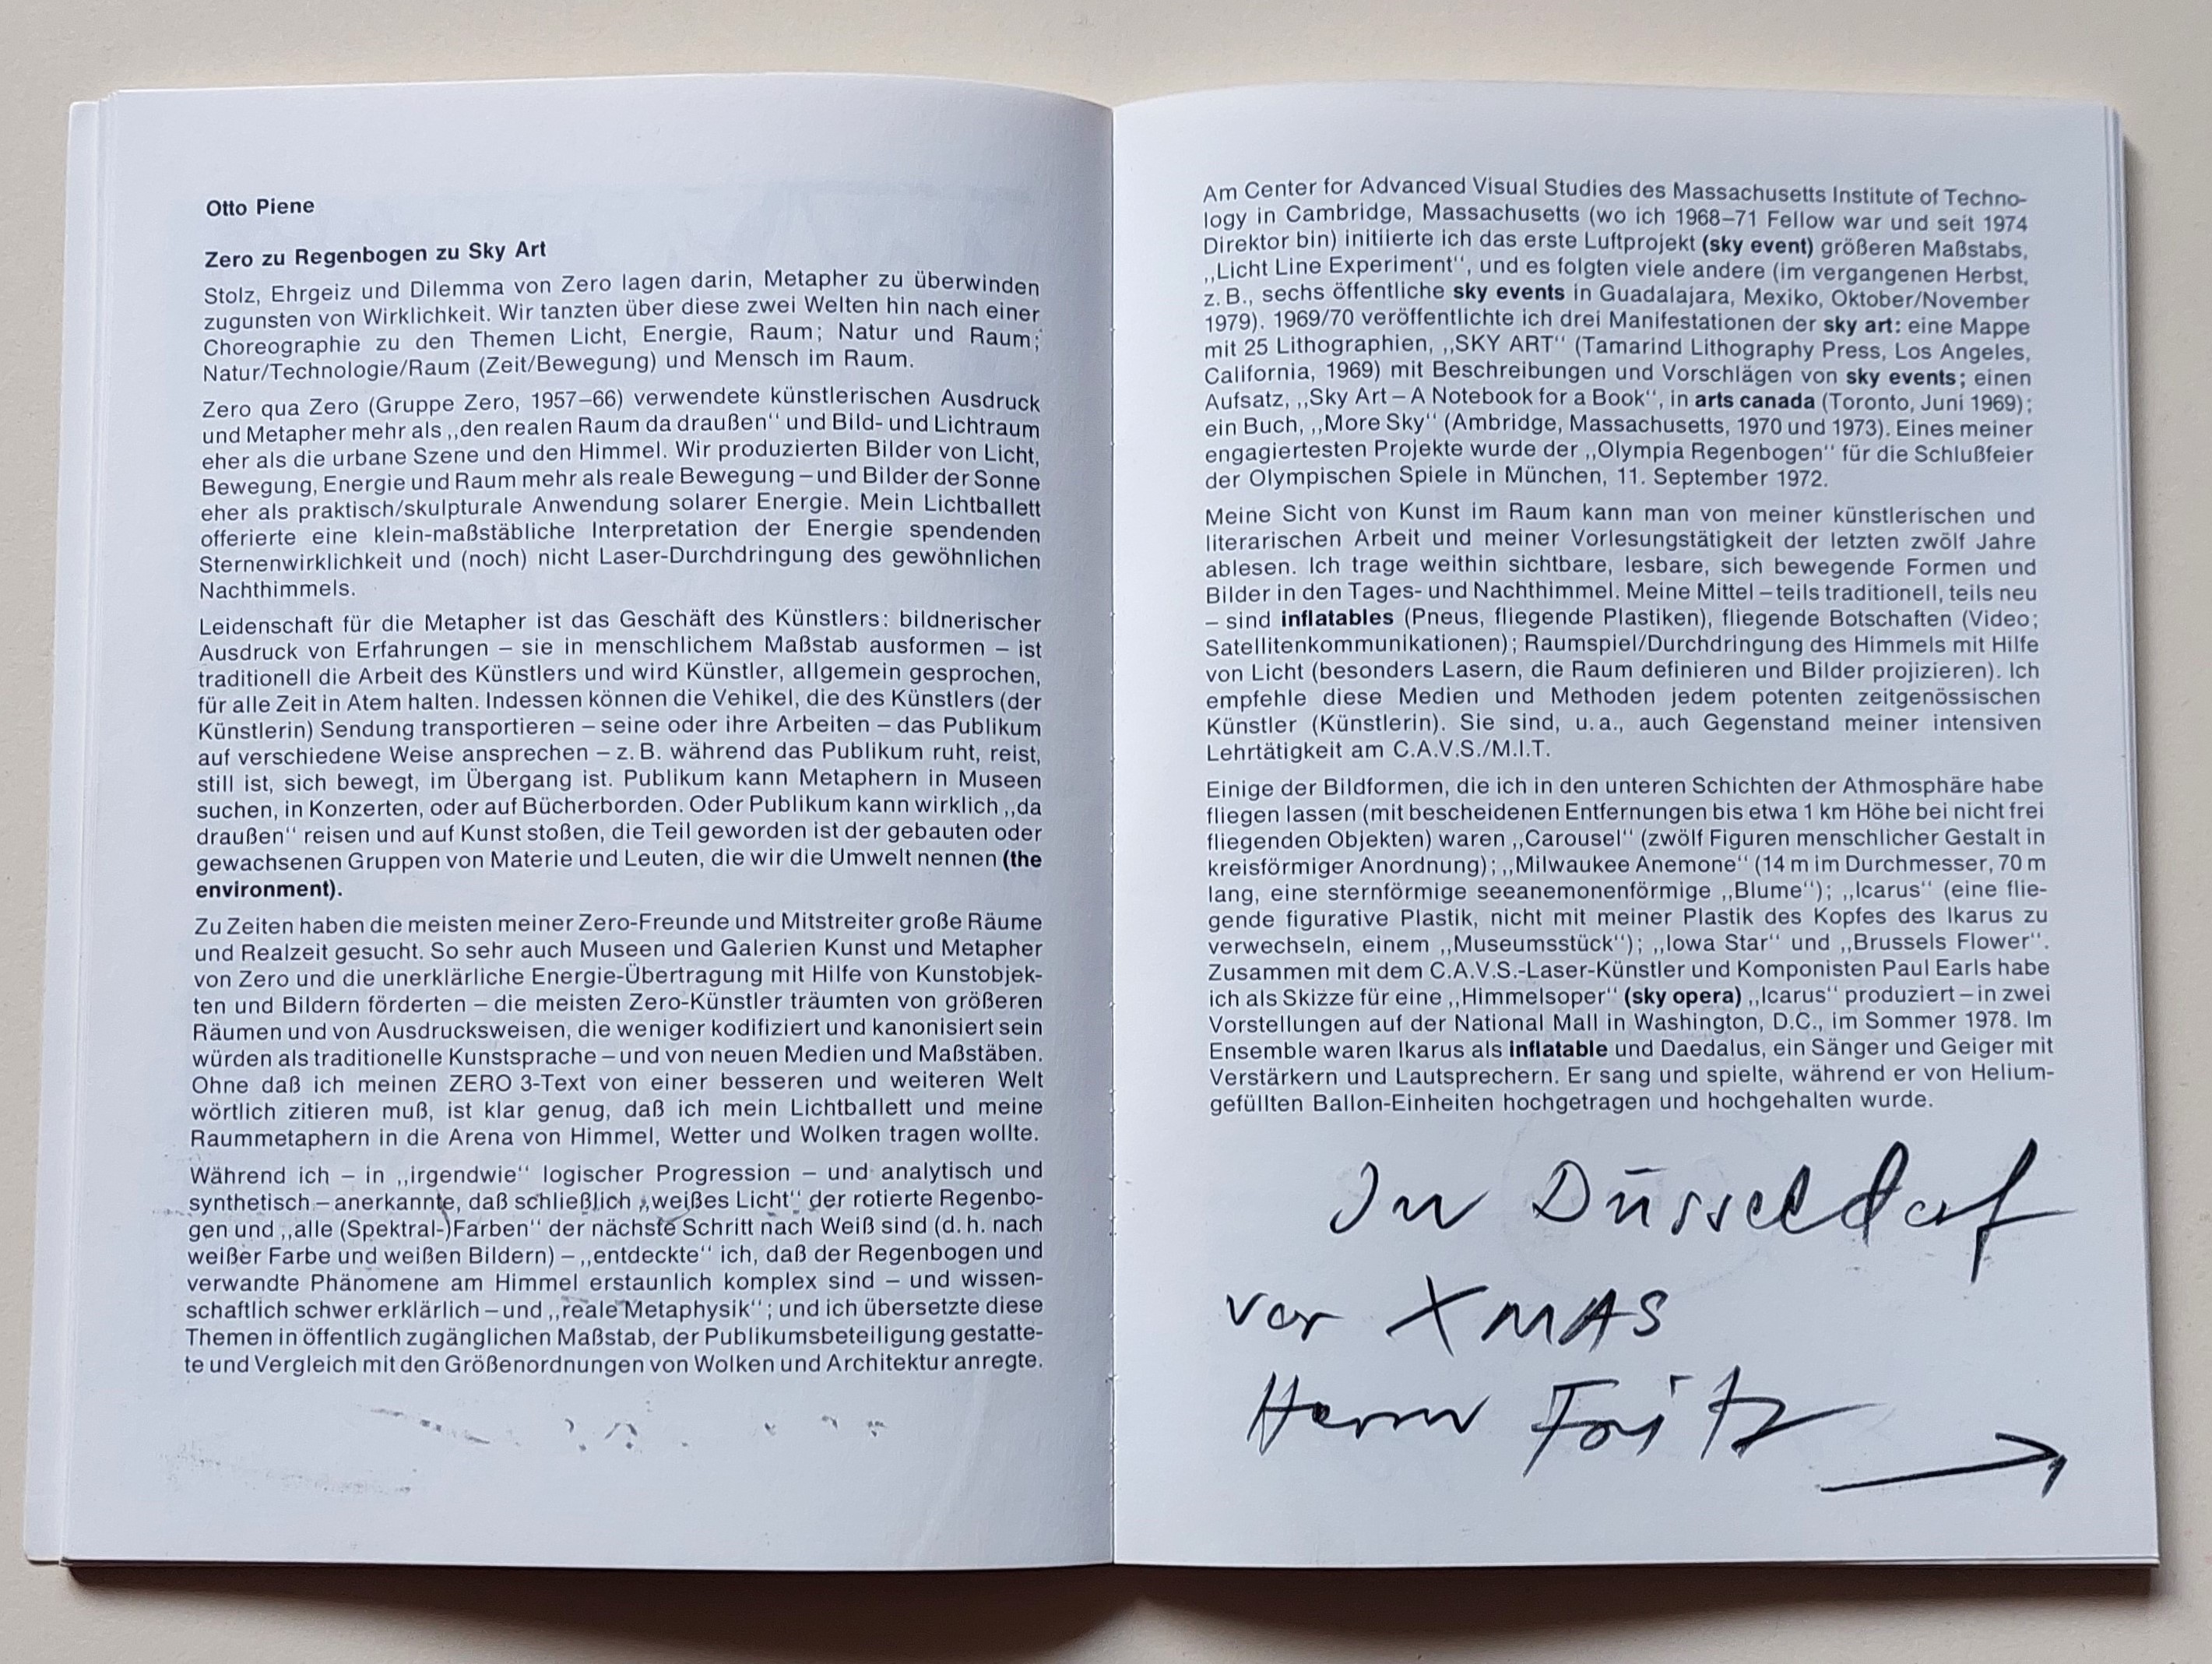 Otto Piene
Zero zu Regenbogen zu Sky Art
Stolz, Ehrgeiz und Dilemma von Zero lagen darin, Metapher zu überwinden
zugunsten von Wirklichkeit. Wir tanzten über diese zwei Welten hin nach einer
Choreographie zu den Themen Licht, Energie, Raum; Natur und Raum;
Natur/Technologie/Raum (Zeit/Bewegung) und Mensch im Raum.
Zero qua Zero (Gruppe Zero, 1957–66) verwendete künstlerischen Ausdruck
und Metapher mehr als ,,den realen Raum da draußen‘‘ und Bild- und Lichtraum
eher als die urbane Szene und den Himmel. Wir produzierten Bilder von Licht,
Bewegung, Energie und Raum mehr als reale Bewegung – und Bilder der Sonne
eher als praktisch/skulpturale Anwendung solarer Energie. Mein Lichtballett
offerierte eine klein-maßstäbliche Interpretation der Energie spendenden
Sternenwirklichkeit und (noch) nicht Laser-Durchdringung des gewöhnlichen
Nachthimmels.
Leidenschaft für die Metapher ist das Geschäft des Künstlers: bildnerischer
Ausdruck von Erfahrungen – sie in menschlichem Maßstab ausformen – ist
traditionell die Arbeit des Künstlers und wird Künstler, allgemein gesprochen,
für alle Zeit in Atem halten. Indessen können die Vehikel, die des Künstlers (der
Künstlerin) Sendung transportieren – seine oder ihre Arbeiten – das Publikum
auf verschiedene Weise ansprechen – z. B. während das Publikum ruht, reist,
still ist, sich bewegt, im Übergang ist. Publikum kann Metaphern in Museen
suchen, in Konzerten, oder auf Bücherborden. Oder Publikum kann wirklich ,,da
draußen‘‘ reisen und auf Kunst stoßen, die Teil geworden ist der gebauten oder
gewachsenen Gruppen von Materie und Leuten, die wir die Umwelt nennen (the
environment).
Zu Zeiten haben die meisten meiner Zero-Freunde und Mitstreiter große Räume
und Realzeit gesucht. So sehr auch Museen und Galerien Kunst und Metapher
von Zero und die unerklärliche Energie-Übertragung mit Hilfe von Kunstobjek-
ten und Bildern förderten – die meisten Zero-Künstler träumten von größeren
Räumen und von Ausdrucksweisen, die weniger kodifiziert und kanonisiert sein
würden als traditionelle Kunstsprache – und von neuen Medien und Maßstäben.
Ohne daß ich meinen ZERO 3-Text von einer besseren und weiteren Welt
wörtlich zitieren muß, ist klar genug, daß ich mein Lichtballett und meine
Raummetaphern in die Arena von Himmel, Wetter und Wolken tragen wollte.
Während ich – in ,,irgendwie‘‘ logischer Progression – und analytisch und
synthetisch – anerkannte, daß schließlich ,,weißes Licht‘‘ der rotierte Regenbo-
gen und ,,alle (Spektral-)Farben‘‘ der nächste Schritt nach Weiß sind (d. h. nach
weißer Farbe und weißen Bildern) – ,,entdeckte‘‘ ich, daß der Regenbogen und
verwandte Phänomene am Himmel erstaunlich komplex sind – und wissen-
schaftlich schwer erklärlich – und ,,reale Metaphysik‘‘; und ich übersetzte diese
Themen in öffentlich zugänglichen Maßstab, der Publikumsbeteiligung gestatte-
te und Vergleich mit den Größenordnungen von Wolken und Architektur anregte.
Am Center for Advanced Visual Studies des Massachusetts Institute of Techno-
logy in Cambridge, Massachusetts (wo ich 1968–71 Fellow war und seit 1974
Direktor bin) initiierte ich das erste Luftprojekt (sky event) größeren Maßstabs,
,,Licht Line Experiment‘‘, und es folgten viele andere (im vergangenen Herbst,
z. B., sechs öffentliche sky events in Guadalajara, Mexiko, Oktober/November
1979). 1969/70 veröffentlichte ich drei Manifestationen der sky art: eine Mappe
mit 25 Lithographien, ,,SKY ART‘‘ (Tamarind Lithography Press, Los Angeles,
California, 1969) mit Beschreibungen und Vorschlägen von sky events; einen
Aufsatz, ,,Sky Art – A Notebook for a Book‘‘, in arts canada (Toronto, Juni 1969);
ein Buch, ,,More Sky‘‘ (Ambridge, Massachusetts, 1970 und 1973). Eines meiner
engagiertesten Projekte wurde der ,,Olympia Regenbogen‘‘ für die Schlußfeier
der Olympischen Spiele in München, 11. September 1972.
Meine Sicht von Kunst im Raum kann man von meiner künstlerischen und
literarischen Arbeit und meiner Vorlesungstätigkeit der letzten zwölf Jahre
ablesen. Ich trage weithin sichtbare, lesbare, sich bewegende Formen und
Bilder in den Tages- und Nachthimmel. Meine Mittel – teils traditionell, teils neu
– sind inflatables (Pneus, fliegende Plastiken), fliegende Botschaften (Video;
Satellitenkommunikationen); Raumspiel/Durchdringung des Himmels mit Hilfe
von Licht (besonders Lasern, die Raum definieren und Bilder projizieren). Ich
empfehle diese Medien und Methoden jedem potenten zeitgenössischen
Künstler (Künstlerin). Sie sind, u. a., auch Gegenstand meiner intensiven
Lehrtätigkeit am C.A.V.S./M.I.T.
Einige der Bildformen, die ich in den unteren Schichten der Athmosphäre habe
fliegen lassen (mit bescheidenen Entfernungen bis etwa 1 km Höhe bei nicht frei
fliegenden Objekten) waren ,,Carousel‘‘ (zwölf Figuren menschlicher Gestalt in
kreisförmiger Anordnung); ,,Milwaukee Anemone‘‘ (14 m im Durchmesser, 70 m
lang, eine sternförmige seeanemonenförmige ,,Blume‘‘); ,,Icarus‘‘ (eine flie-
gende figurative Plastik, nicht mit meiner Plastik des Kopfes des Ikarus zu
verwechseln, einem ,,Museumsstück‘‘); ,,Iowa Star‘‘ und ,,Brussels Flower‘‘.
Zusammen mit dem C.A.V.S.-Laser-Künstler und Komponisten Paul Earls habe
ich als Skizze für eine ,,Himmelsoper‘‘ (sky opera) ,,Icarus‘‘ produziert – in zwei
Vorstellungen auf der National Mall in Washington, D.C., im Sommer 1978. Im
Ensemble waren Ikarus als inflatable und Daedalus, ein Sänger und Geiger mit
Verstärkern und Lautsprechern. Er sang und spielte, während er von Helium-
gefüllten Ballon-Einheiten hochgetragen und hochgehalten wurde.
In Düsseldorf
vor XMAS
Herrn Fritz
→